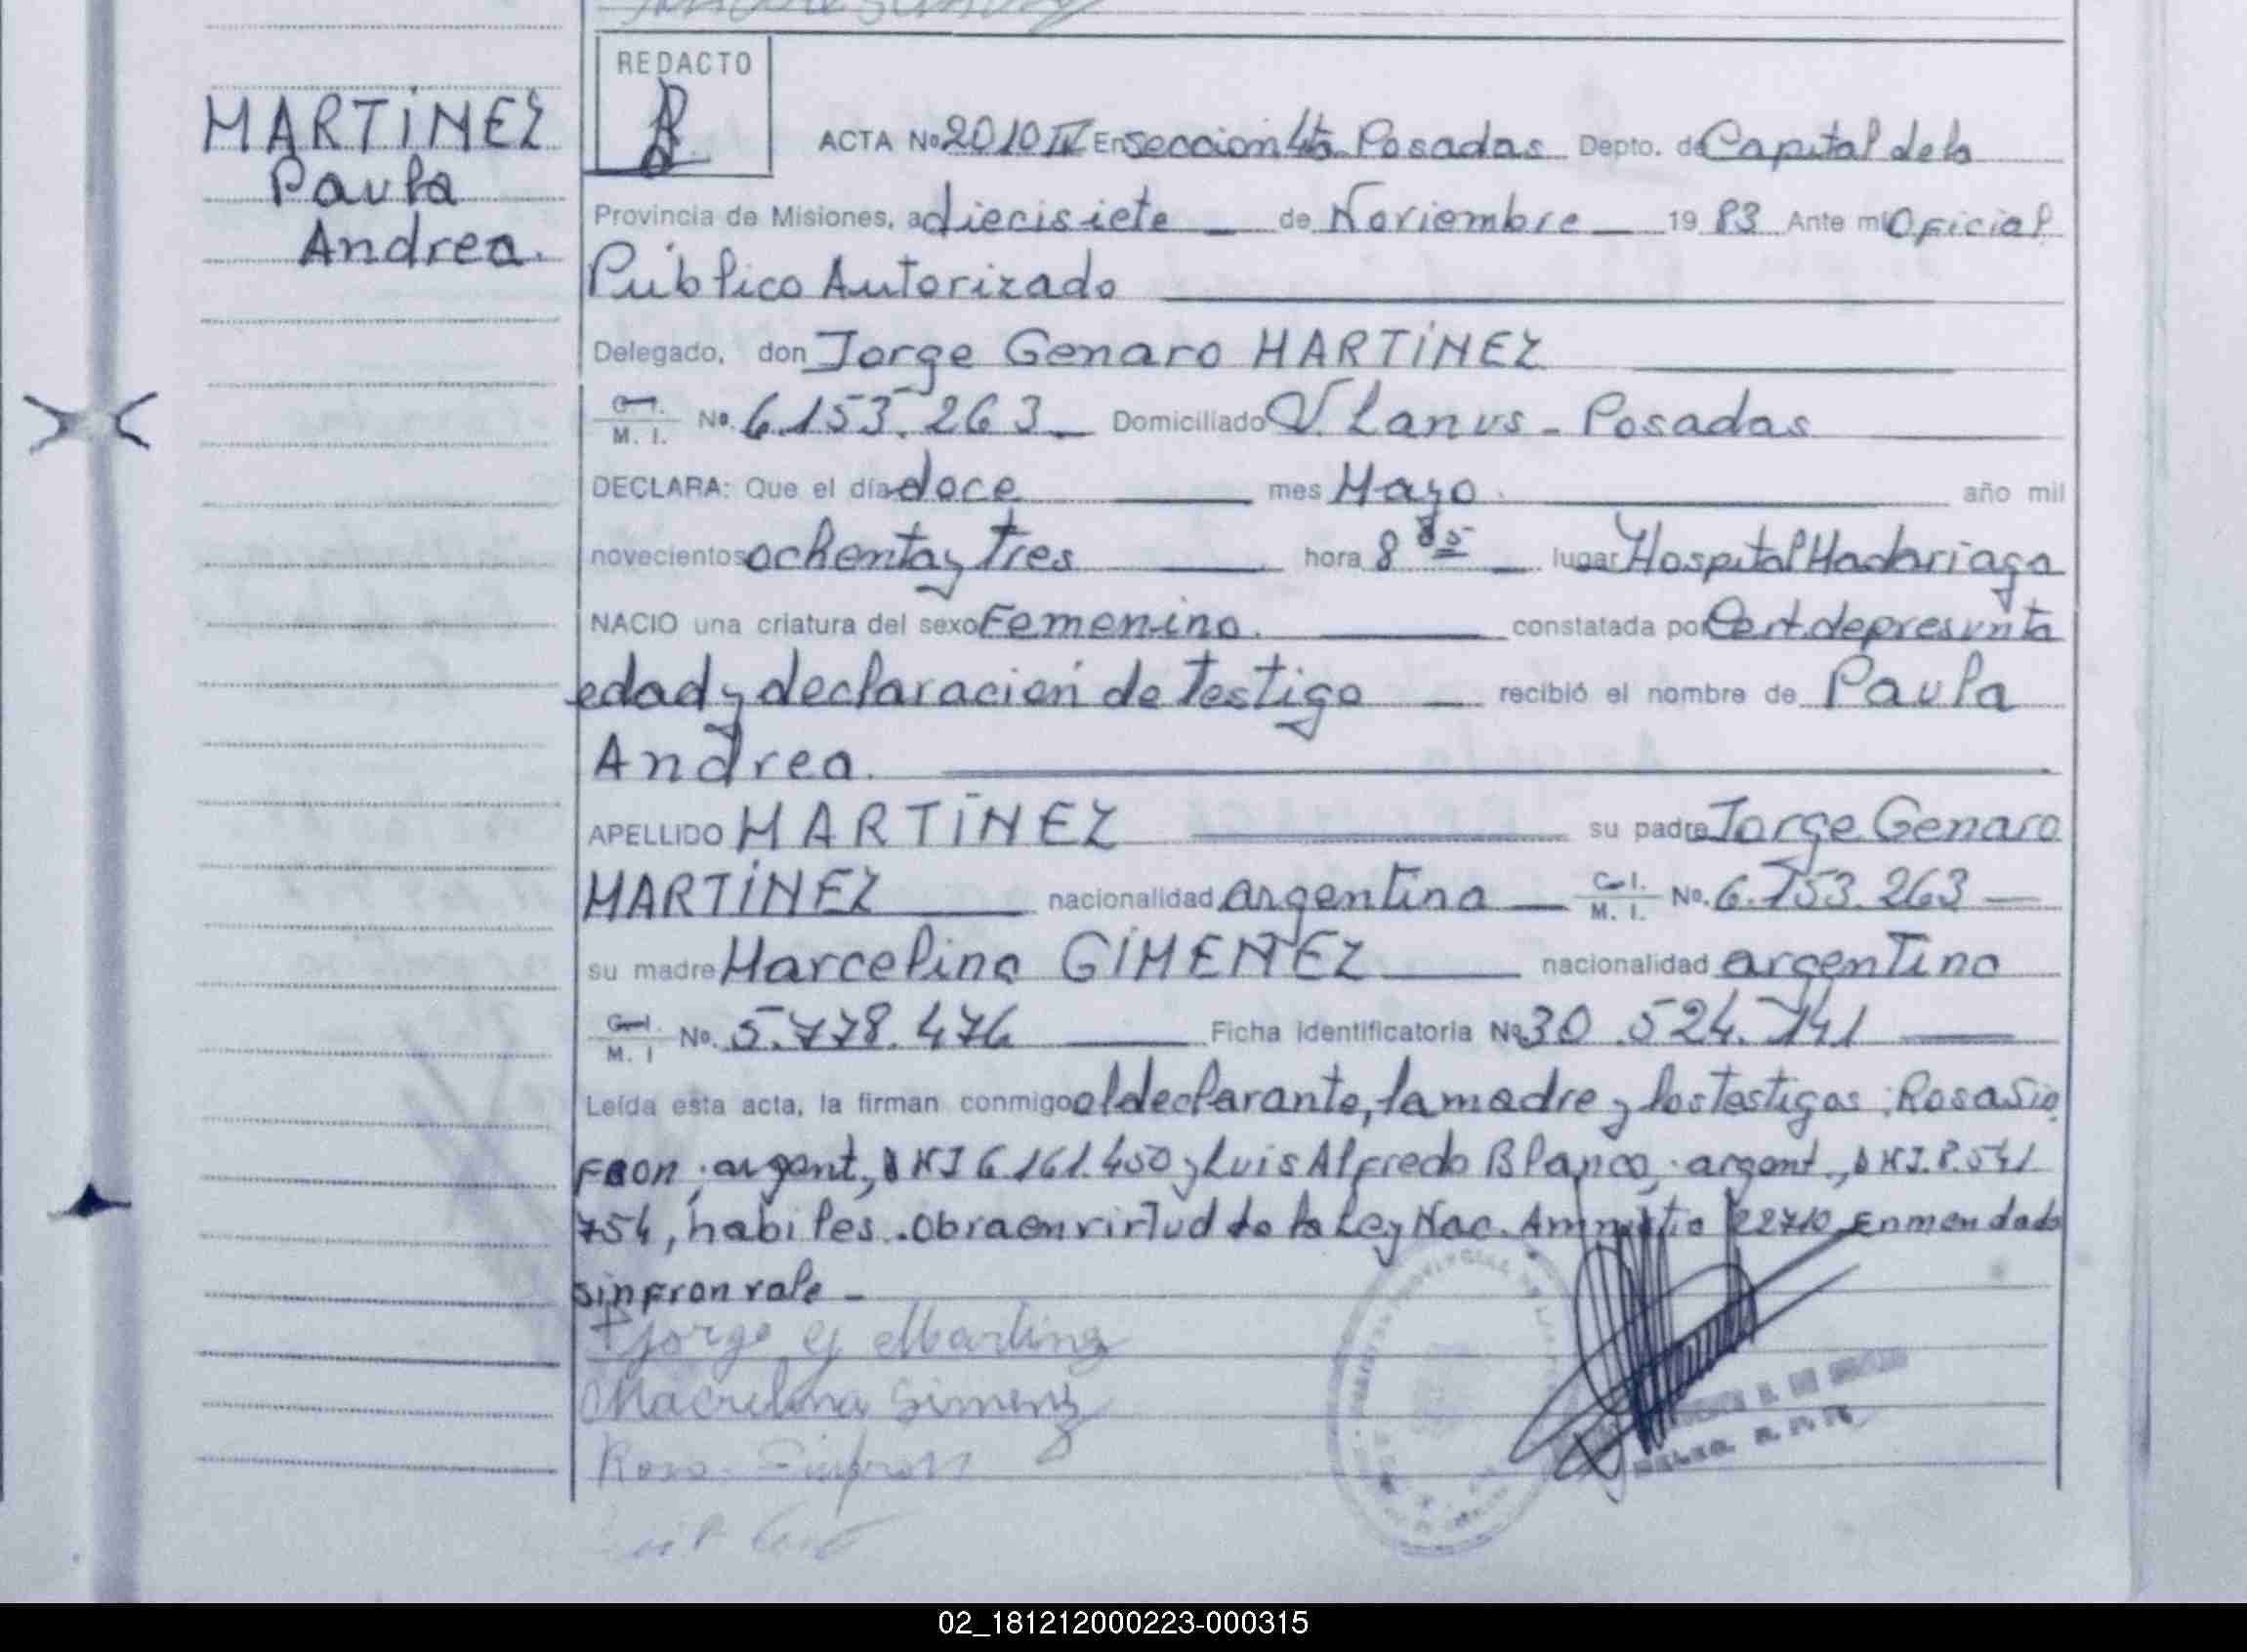 MARTÍNEZ
Paula
Andrea.
REDACTO
ACTA No 2010 IV En sección 4ta Posadas Depto. de Capital de la
Provincia de Misiones, a diecisiete de Noviembre 1983 Ante mi Oficial
Público Autorizado
Delegado, don Jorge Genaro MARTÍNEZ
C. I. M. I. No. 6.153.263 Domiciliado V. Lanus - Posadas
DECLARA: Que el día doce mes Mayo. año mil
novecientos ochenta y tres hora 8 lugar Hospital Madariaga
NACIO una criatura del sexo Femenino. constatada por Cert. de presunta
edad y declaración de testigo recibió el nombre de Paula
Andrea.
APELLIDO MARTÍNEZ su padre Jorge Genaro
MARTÍNEZ nacionalidad argentina C. I. M. I. No. 6.153.263
su madre Marcelina GÍMENEZ nacionalidad argentina
C. I. M. I No. 5.778.476 Ficha identificatoria No 30.524.741
Leída esta acta, la firman conmigo el declarante, la madre y los testigos: Rosa Sin
fron, argent, DNI 6.161.450 y Luis Alfredo Blanco, argent., DNI. 8.541
754, hábiles. Obra en virtud de la Ley Nac. Amnistía 22710 Enmendado
sinfron vale -
Jorge G Martinez
Macrelina Gimenz
Rosa Sinfron
02_181212000223-000315